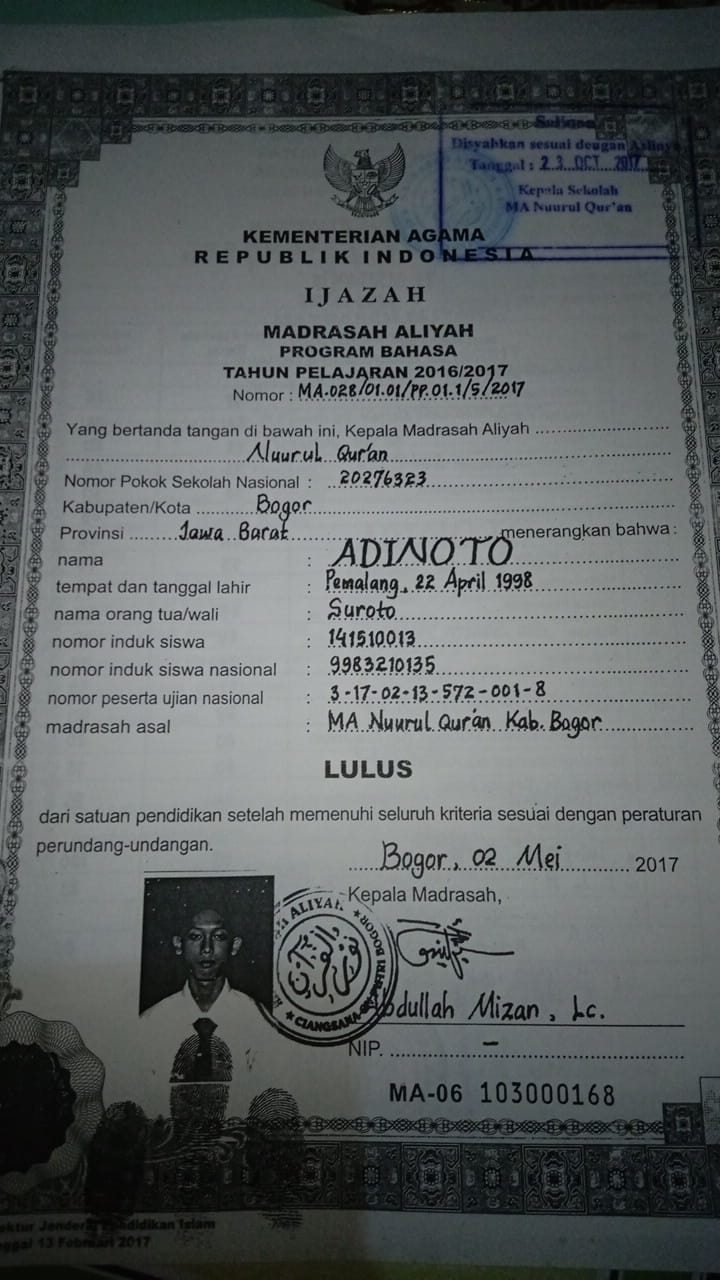 Disyahkan sesuai dengan Aslinya
Tanggal : 23 OCT 2017
Kepala Sekolah
MA Nuurul Qur'an
KEMENTERIAN AGAMA
REPUBLIK INDONESIA
IJAZAH
MADRASAH ALIYAH
PROGRAM BAHASA
TAHUN PELAJARAN 2016/2017
Nomor : MA.028/01.01/PP.01.1/5/2017
Yang bertanda tangan di bawah ini, Kepala Madrasah Aliyah
Nuurul Qur'an
Nomor Pokok Sekolah Nasional : 20276323
Kabupaten/Kota Bogor
Provinsi Jawa Barat menerangkan bahwa :
nama : ADINOTO
tempat dan tanggal lahir : Pemalang, 22 April 1998
nama orang tua/wali : Suroto
nomor induk siswa : 141510013
nomor induk siswa nasional : 9983210135
nomor peserta ujian nasional : 3-17-02-13-572-001-8
madrasah asal : MA Nuurul Qur'an Kab. Bogor
LULUS
dari satuan pendidikan setelah memenuhi seluruh kriteria sesuai dengan peraturan
perundang-undangan.
Bogor, 02 Mei 2017
Kepala Madrasah,
ALIYAH
CIANGSANA
BOGOR
Abdullah Mizan, Lc.
NIP. -
MA-06 103000168
Jenderal Pendidikan Islam
13 Februari 2017